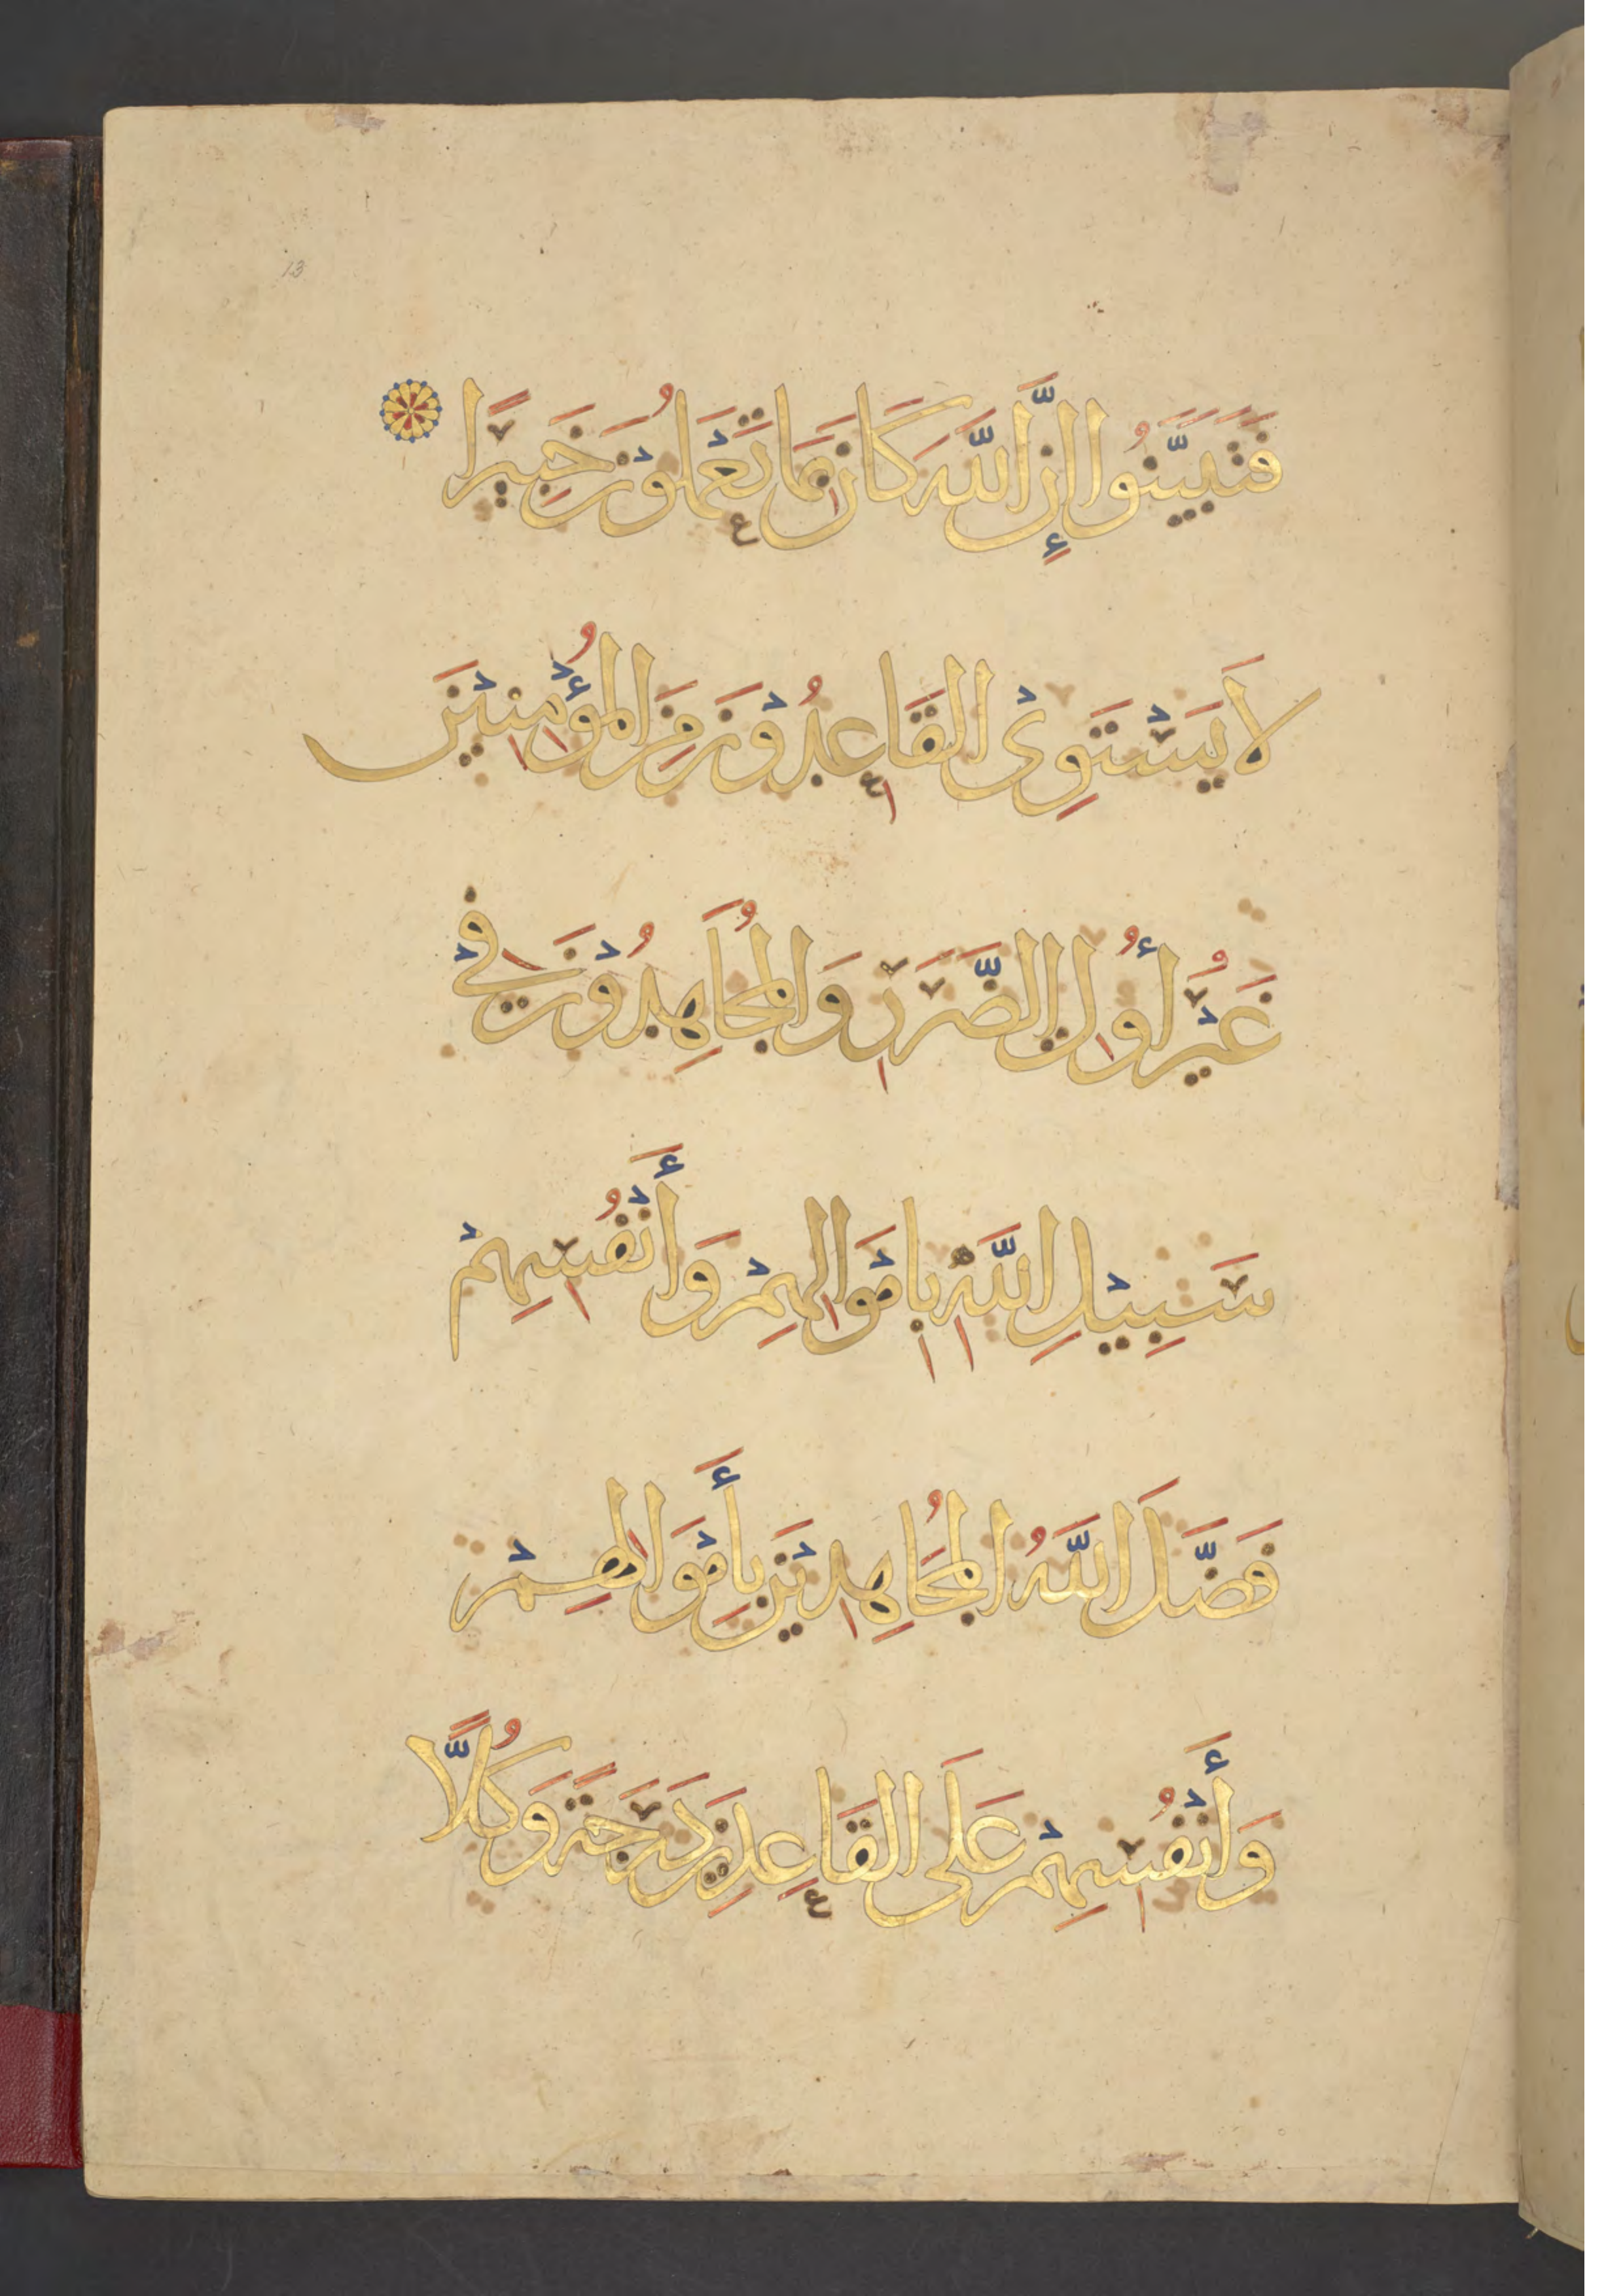 13
فَتَبَيَّنُوا إِنَّ اللَّهَ كَانَ بِمَا تَعْمَلُوْنَ خَبِيرًا
لَا يَسْتَوِىْ الْقَاعِدُوْنَ مِنَ الْمُؤْمِنِيْنَ
غَيْرُ أُولِى الضَّرَرِ وَالْمُجَاهِدُوْنَ فِىْ
سَبِيْلِ اللَّهِ بِامْوَالِهِمْ وَأَنْفُسِهِمْ
فَضَّلَ اللَّهُ الْمُجَاهِدِيْنَ بِأَمْوَالِهِمْ
وَأَنْفُسِهِمْ عَلَى الْقَاعِدِينَ دَرَجَةً وَكُلًّا